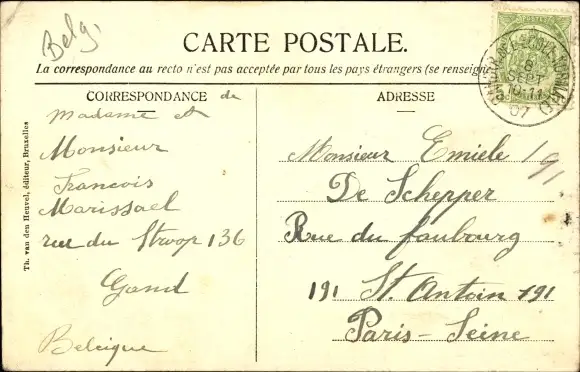 Belg.
CARTE POSTALE.
La correspondance au recto n'est pas acceptée par tous les pays étrangers (se renseigne
CORRESPONDANCE de
Madame et
Monsieur
Francois
Marissael
rue du Stroop 136
Gand
Belcique
Th. van den Heuvel, éditeur, Bruxelles
ADRESSE
Monsieur Emiele
De Schepper
Rue du faubourg
191 St. Antoin 191
Paris - Seine
191
8
SEPT
10-11
07